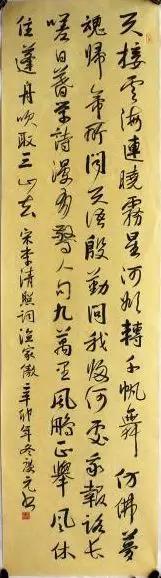 天接雲濤連曉霧星河欲轉千帆舞仿佛夢
魂歸帝所聞天語殷勤問我歸何處我報路長
嗟日暮學詩漫有驚人句九萬里風鵬正舉風休
住蓬舟吹取三山去宋李清照詞漁家傲辛卯年冬慶元書